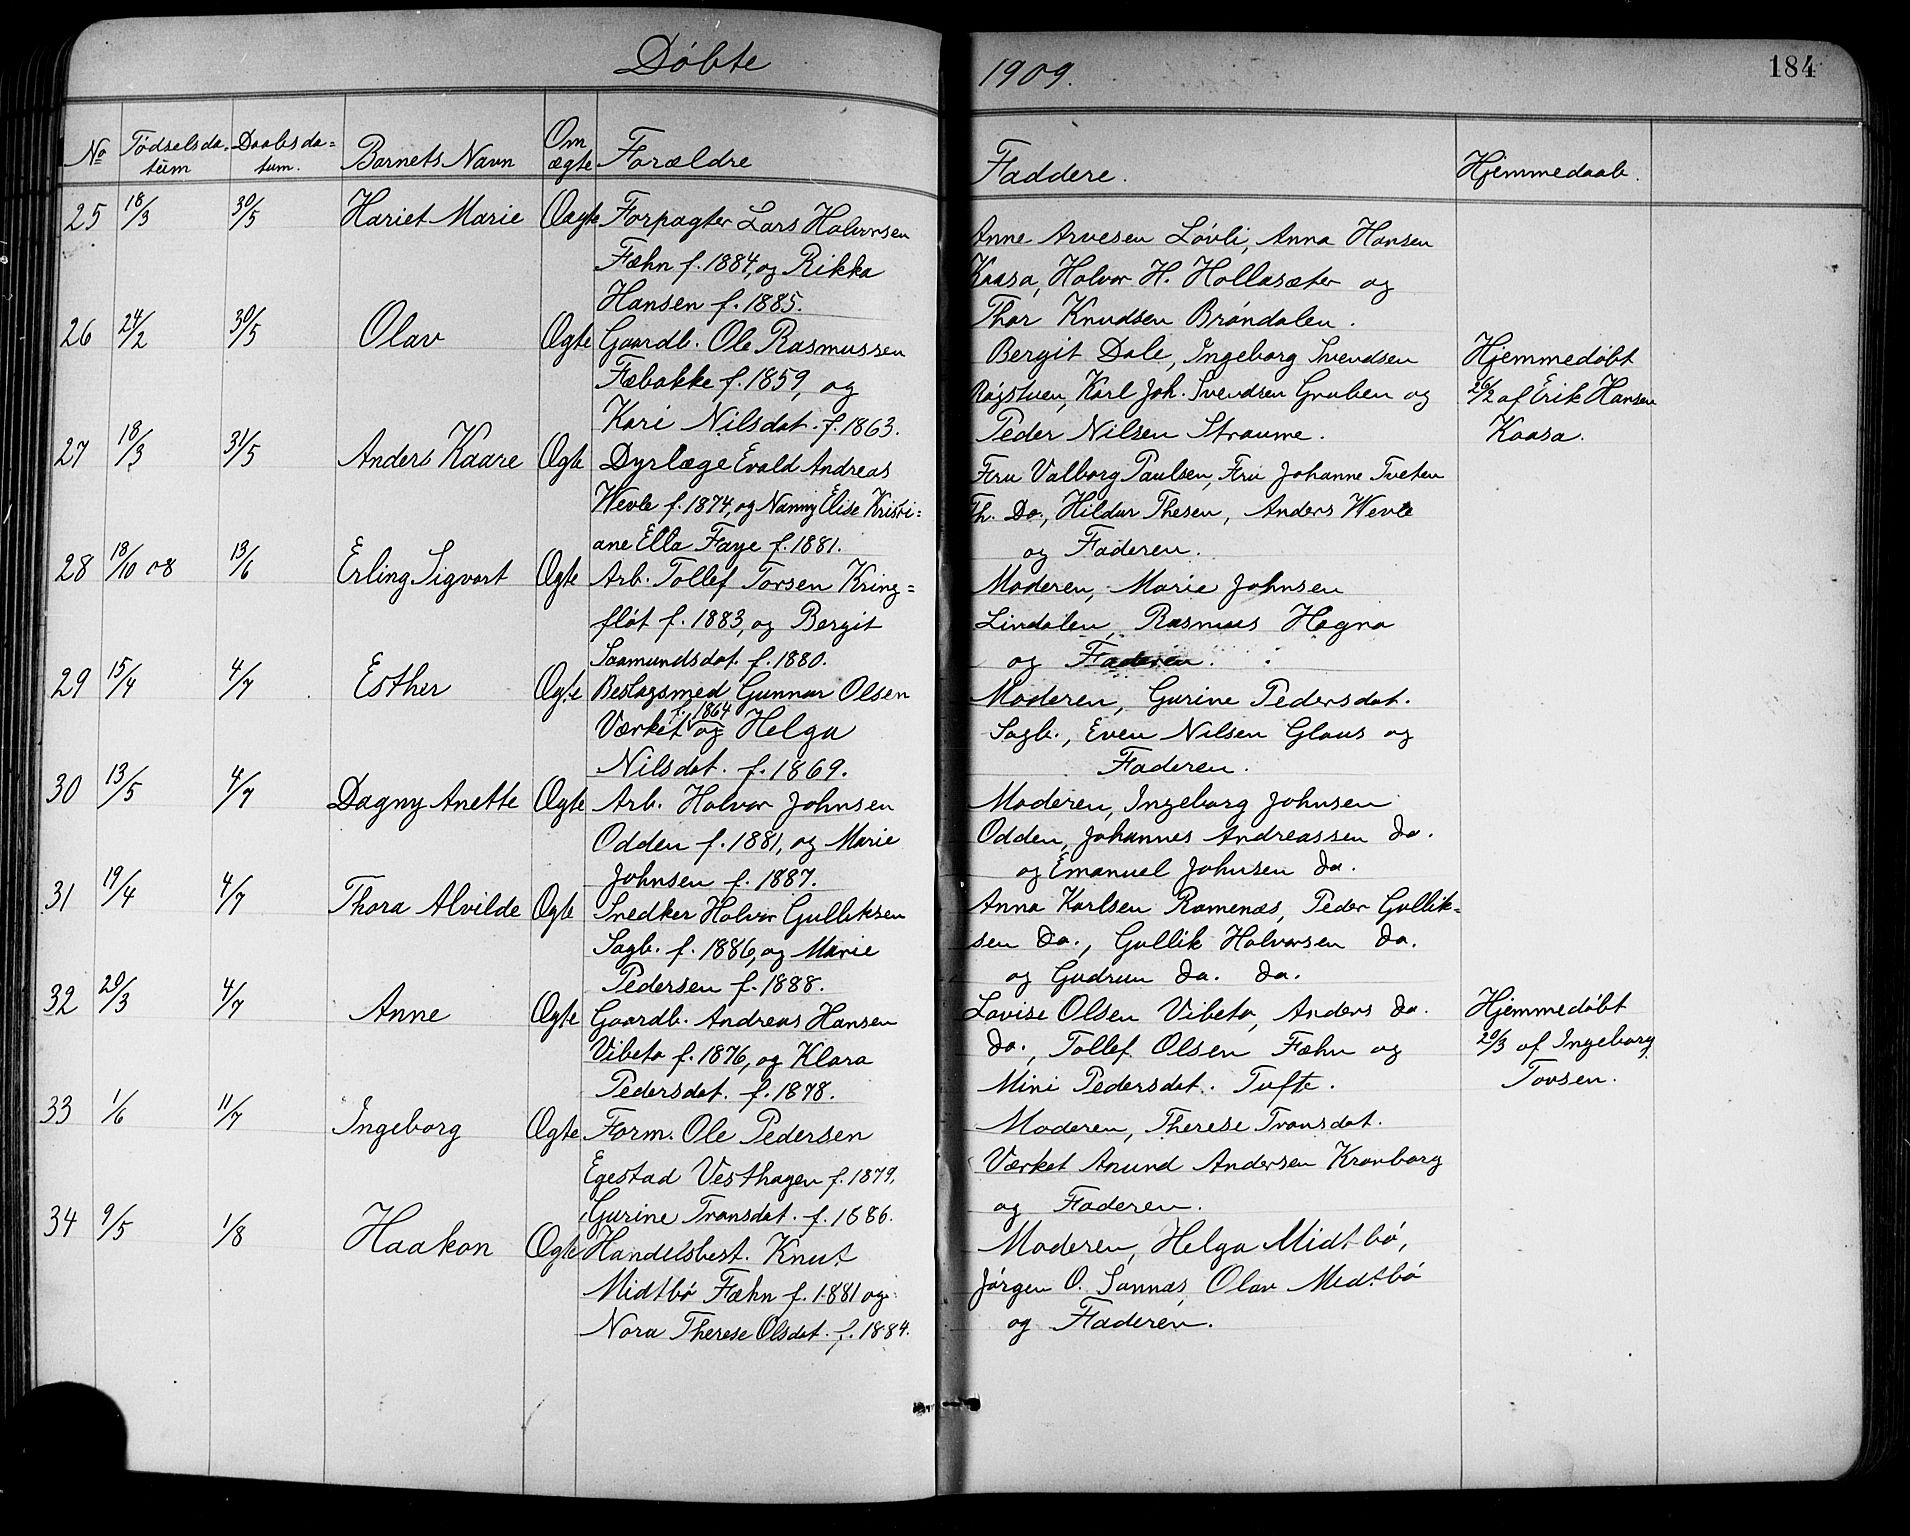 Döbte 1909. 184
No Födselsda-tum Daabsda=tum. Barnets Navn Om ægte Forældre Faddere. Hjemmedaab.
25 18/3 30/5 Hariet Marie Uægte Forpagter Lars Halvorsen
Fæhn f. 1884, og Rikka
Hansen f. 1885.
Anne Arvesen Lövli, Anna Hansen
Kaasa, Halvor H. Hollasæter og
Thor Knudsen Bröndalen.
26 24/2 30/5 Olav Ægte Gaardb. Ole Rasmussen
Fæbakke f. 1859, og
Kari Nilsdat. f. 1863.
Bergit Dale, Ingeborg Svendsen
Karl Joh. Svendsen Gruben og
Peder Nilsen Straume.
Hjemmedöbt
26/2 af Erik Hansen
Kaasa.
27 18/3 31/5 Anders Kaare Ægte Dyrlæge Evald Andreas
Wevle f. 1874, og Nanny Elise Kristi=
ane Ella Faye f. 1881.
Fru Valborg Paulsen, Fru Johanne Tveten
Th. Do., Hildur Thesen, Anders Wevle
og Faderen.
28 18/10 08 13/6 Erling Sigvart Ægte Arb. Tollef Torsen Kring=
flöt f. 1883, og Bergit
Saamundsdat. f. 1880.
Moderen, Marie Johnsen
Lindalen, Rasmus Hagna
og Faderen.
29 15/4 4/7 Esther Ægte Beslagsmed Gunnar Olsen
Værket f. 1864 og Helga
Nilsdat. f. 1869.
Moderen, Gurine Pedersdat.
Sagb., Even Nilsen Glaus og
Faderen.
30 13/5 4/7 Dagny Anette Ægte Arb. Halvor Johnsen
Odden f. 1881, og Marie
Johnsen f. 1887.
Moderen, Ingeborg Johnsen
Odden, Johannes Andreassen do.
og Emanuel Johnsen do.
31 19/4 4/7 Thora Alvilde Ægte Snedker Halvor Gulliksen
Sagb. f. 1886, og Marie
Pedersen f. 1888.
Anna Karlsen Ramenæs, Peder Gullik=
sen do., Gullik Halvorsen do.
og Gudrun do. do.
32 20/3 4/7 Anne Ægte Gaardb. Andreas Hansen
Vibeto f. 1876, og Klara
Pedersdat. f. 1878.
Lovise Olsen Vibeto, Anders do.
do., Tollef Olsen Fæhn og
Mini Pedersdat. Tufte.
Hjemmedöbt
20/3 af Ingeborg
Tovsen.
33 1/6 11/7 Ingeborg Ægte Form. Ole Pedersen
Egestad Vesthagen f. 1879,
Gurine Transdat. f. 1886.
Moderen, Therese Transdat.
Værket Anund Andersen Kronborg
og Faderen.
34 9/5 1/8 Haakon Ægte Handelsbest. Knut
Midtbö Fæhn f. 1881 og
Nora Therese Olsdat. f. 1884.
Moderen, Helga Midtbö,
Jörgen O. Sannæs, Olav Midtbö
og Faderen.